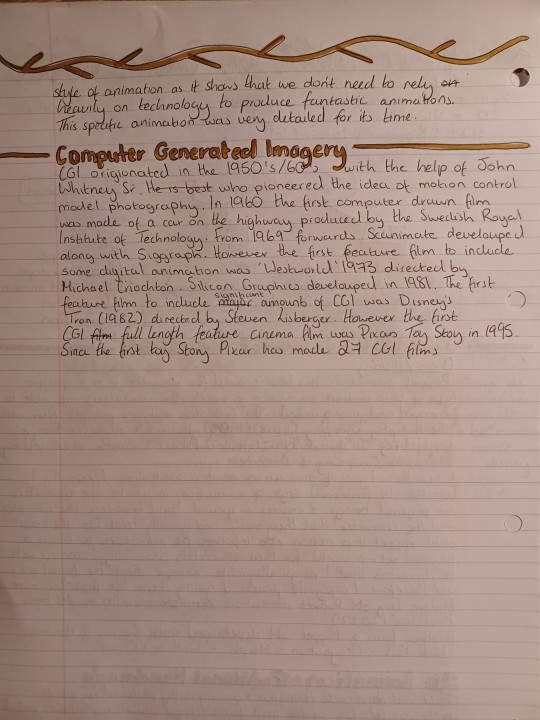 style of animation as it shows that we don't need to rely on
heavily on technology to produce fantastic animations.
This specific animation was very detailed for its time.
Computer Generated Imagery
CGI origionated in the 1950's/60s, with the help of John
Whitney Sr. He is best who pioneered the idea of motion control
model photography. In 1960 the first computer drawn film
was made of a car on the highway produced by the Swedish Royal
Institute of Technology. From 1969 forwards Scanimate developed
along with Siggraph. However the first feature film to include
some digital animation was 'Westworld' 1973 directed by
Michael Criochton. Silicon Graphics developed in 1981. The first
feature film to include major significant amounts of CGI was Disney's
Tron (1982) directed by Steven Lisberger. However the first
CGI film full length feature cinema film was Pixars Toy Story in 1995
Since the first toy Story Pixar has made 27 CGI films